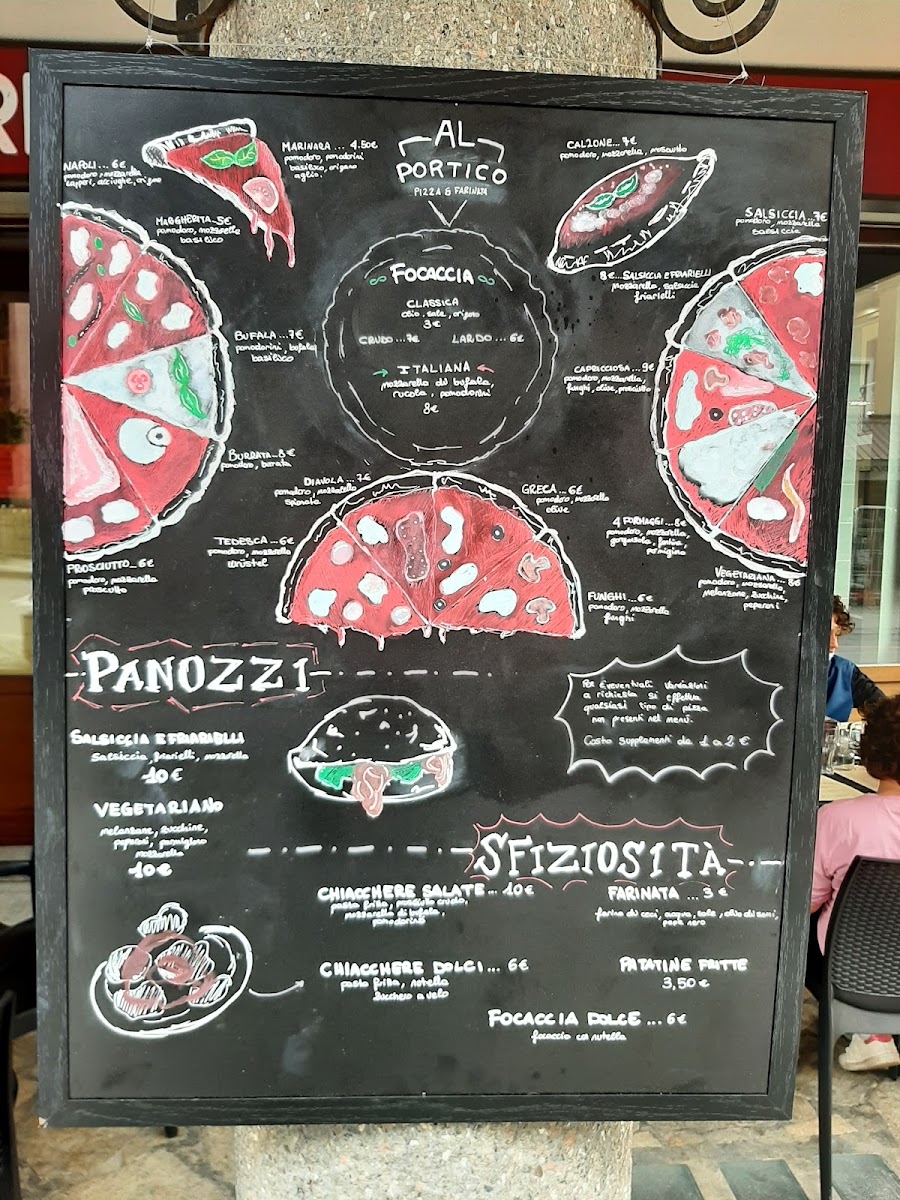 AL
PORTICO
PIZZA & FARINATA
NAPOLI... 6€
pomodoro, mozzarella
capperi, acciughe, origano
MARINARA ... 4.50€
pomodoro, pomodorini
basilico, origano
aglio.
CALZONE...7€
pomodoro, mozzarella, prosciutto
MARGHERITA_5€
pomodoro, mozzarella
basilico
SALSICCIA...7€
pomodoro, mozzarella
salsiccia
8€...SALSICCIA E FRIARIELLI
mozzarella, salsiccia
friarielli
FOCACCIA
CLASSICA
olio, sale, origano
3€
CRUDO...7€ LARDO...6€
ITALIANA
mozzarella di bufala,
rucola, pomodorini
8€
BUFALA...7€
pomodorini, bufala
basilico
CAPRICCIOSA...9€
pomodoro, mozzarella,
funghi, olive, prosciutto
BURRATA_8€
pomodoro, burrata
DIAVOLA...7€
pomodoro, mozzarella
spianata
GRECA...6€
pomodoro, mozzarella
olive
TEDESCA...6€
pomodoro, mozzarella
würstel
4 FORMAGGI...8€
mozzarella,
gorgonzola, fontina,
parmigiano
PROSCIUTTO_6€
pomodoro, mozzarella
prosciutto
VEGETARIANA...8€
pomodoro, mozzarella,
melanzane, zucchine,
peperoni
FUNGHI...6€
pomodoro, mozzarella
funghi
PANOZZI
SALSICCIA E FRIARIELLI
Salsiccia, friarielli, mozzarella
10€
VEGETARIANO
melanzane, zucchine,
peperoni, parmigiano
mozzarella
10€
Per eventuali variazioni
a richiesta si effettua
qualsiasi tipo di pizza
non presenti nel menù.
Costo supplementi da 1 a 2 €
SFIZIOSITÀ
CHIACCHERE SALATE... 10€
pasta fritta, prosciutto crudo,
mozzarella di bufala,
pomodorini
FARINATA ...3€
farina di ceci, acqua, sale, olio di semi,
pepe nero
CHIACCHERE DOLCI... 6€
pasta fritta, nutella
zucchero a velo
PATATINE FRITTE
3,50€
FOCACCIA DOLCE...6€
focaccia con nutella